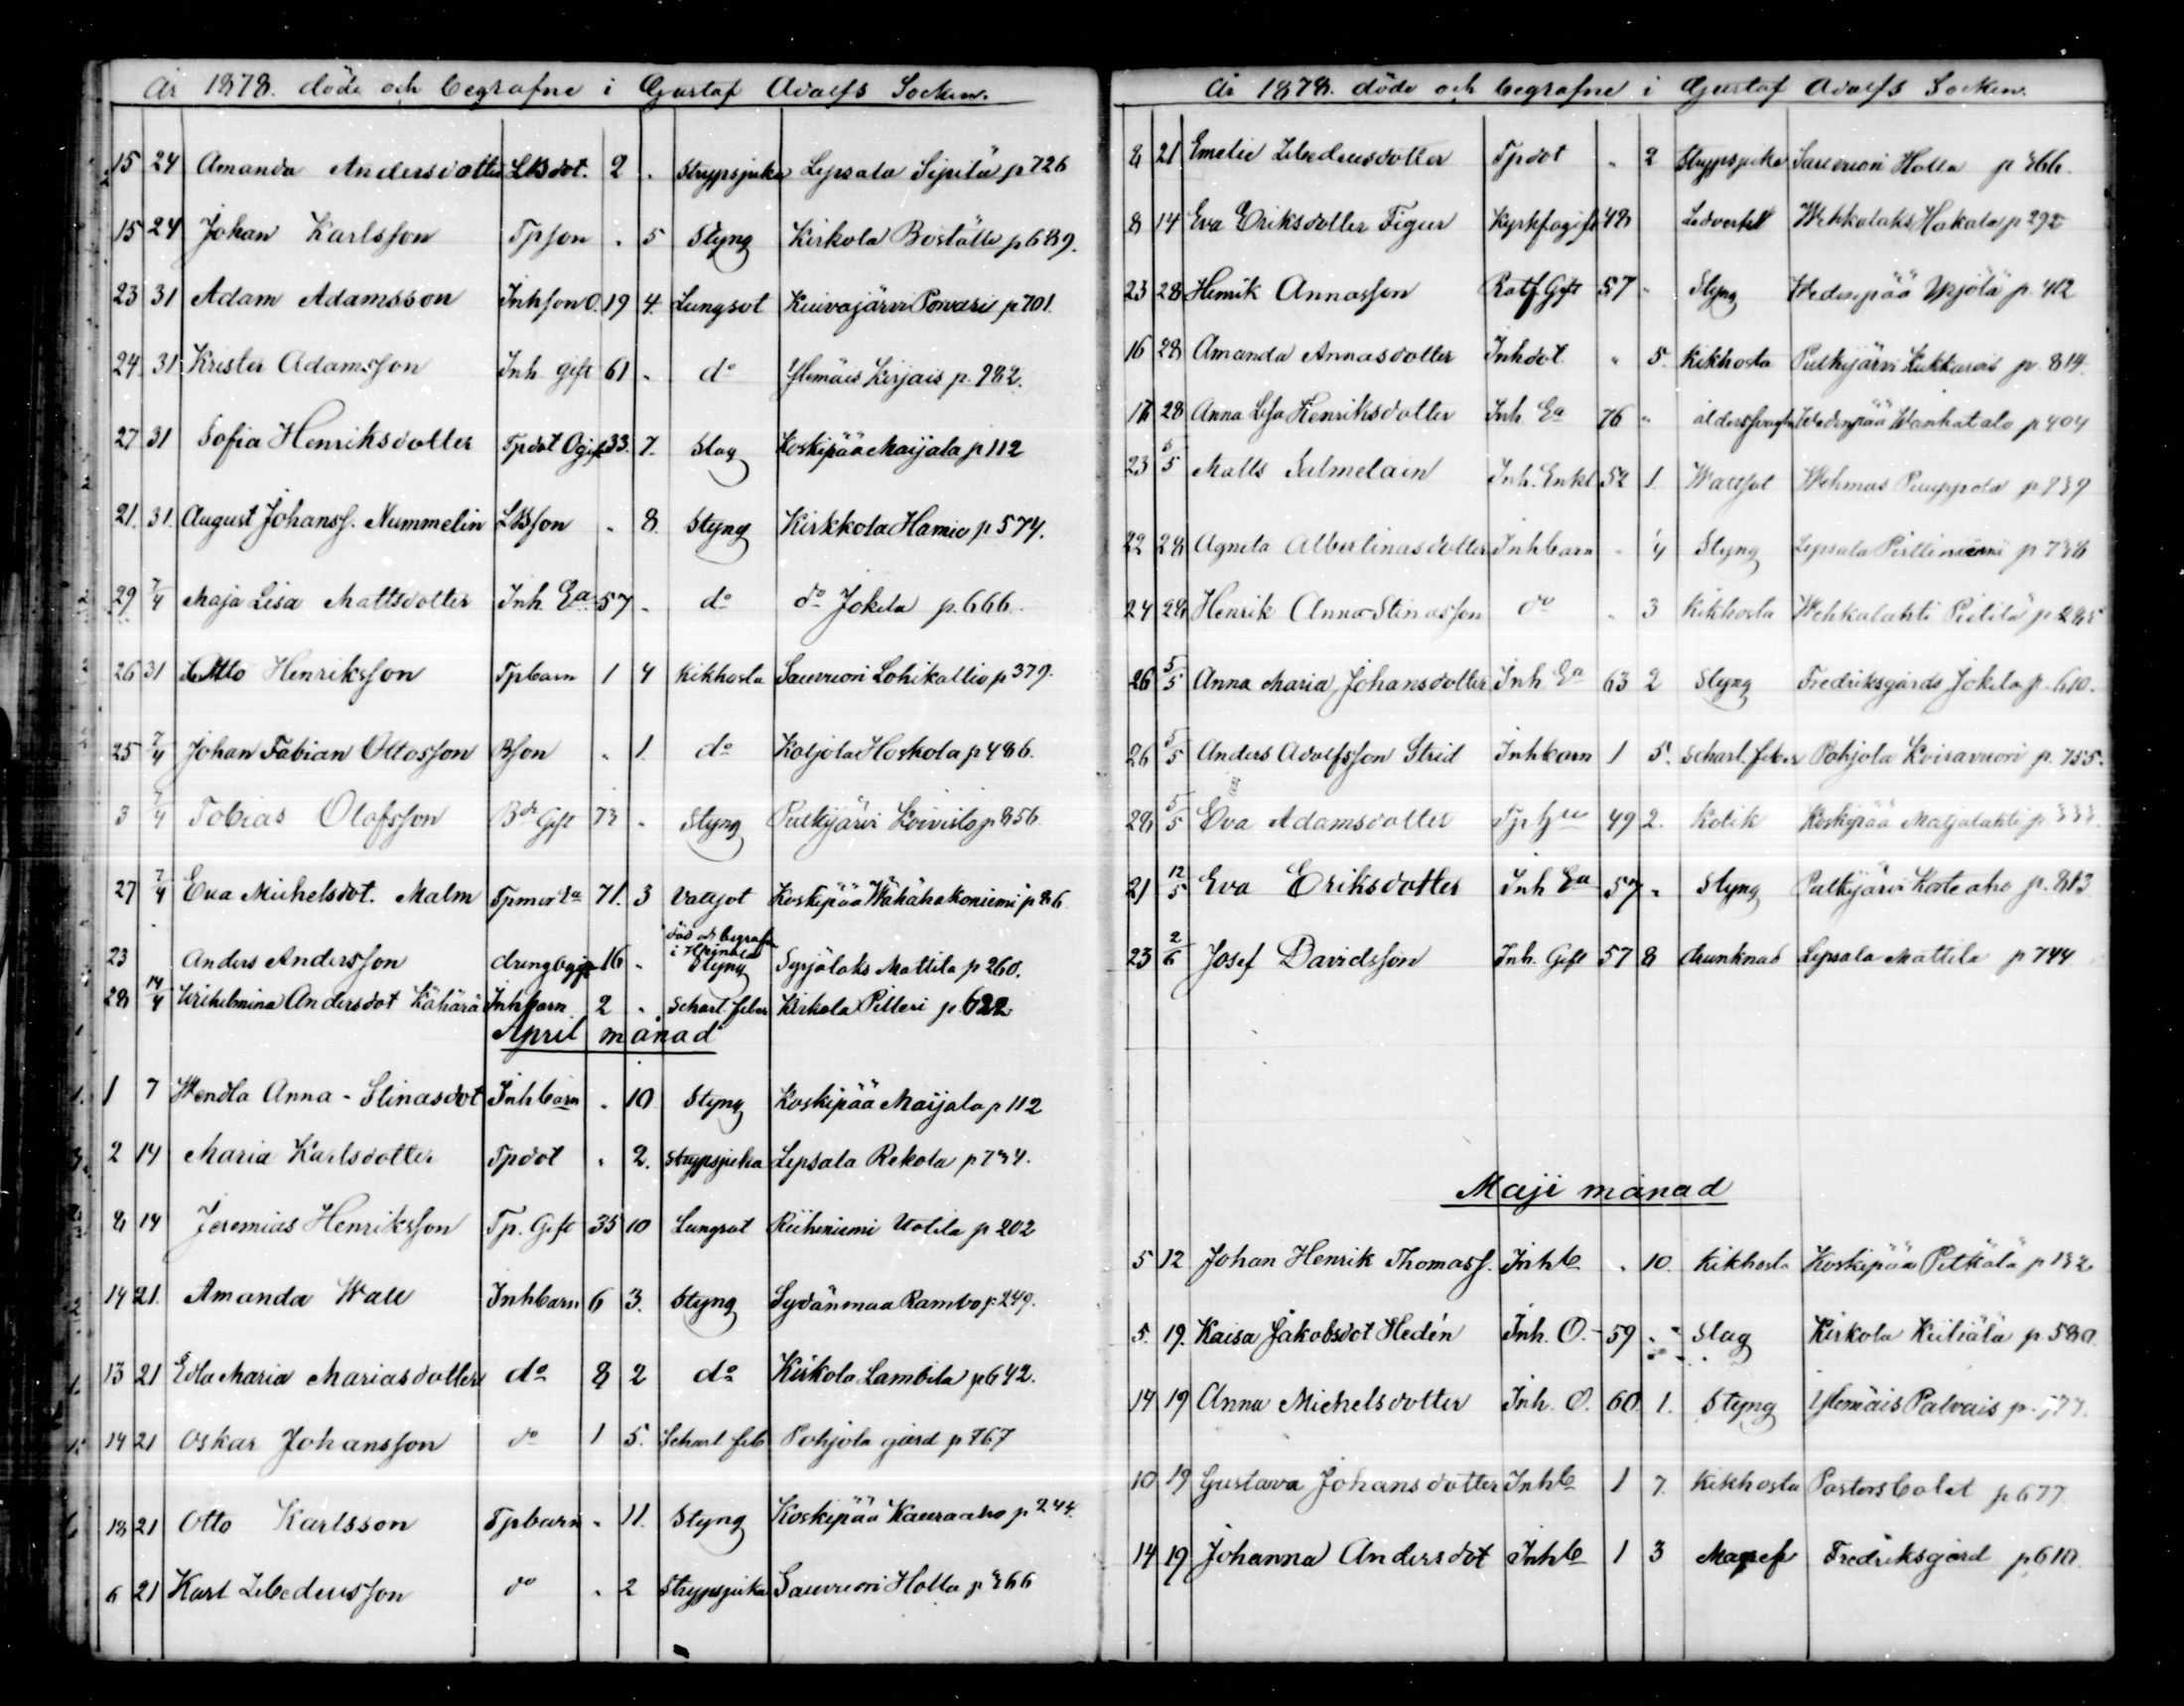 År 1878. döde och begrafne i Gustaf Adolfs Socken.
15 24 Amanda Andersdotter LBdot. 2 " Strypsjuka Lepsala Sipilä p 726
15 24 Johan Karlsson Tpson " 5 Styng Kirkola Boställe p 689.
23 31 Adam Adamsson Inhson O. 19 4. Lungsot Kuivajärvi Porvari p 701.
24. 31 Krister Adamsson Inh. gift 61 " do Ylemäis Kirjais p. 982.
27 31 Sofia Henriksdotter Tpdot Ogift 33. 7. Slag Koskipää Maijala p 112
21. 31. August Johanss. Nummelin LBson " 8. Styng Kirkkola Hamio p 574.
29 7/4 Maja Lisa Mattsdotter Inh. Ea 57 " do do Jokela p. 666
26 31 Otto Henriksson Tpbarn 1 4 Kikhosta Sauvuori Lohikallio p 379.
25 7/4 Johan Fabian Ottosson Bson " 1. do Koljola Hoskola p 486.
3 7/4 Tobias Olofsson Bde Gift 73 " Styng Pulkijärvi Koivisto p 856
27 7/4 Eva Michelsdot. Malm Tpmor Ea 71. 3 Vattsot Koskipää Wähähakoniemi p 86
död och begrafn i Heinola
23 Anders Andersson dreng ogift 16 " Styng Syrjälaks Mattila p 260.
28 14/4 Wilhelmina Andersdot Kähärä Inhbarn 2 " Scharl. feber Kirkola Pilleri p 622
April månad
1 7 Wendla Anna-Stinasdot Inhbarn " 10 Styng Koskipää Maijala p 112
2 14 Maria Karlsdotter Tpdot " 2. Strypsjuka Lepsala Rekola p 734.
8 14 Jeremias Henriksson Tp. Gift 35 10 Lungsot Riihiniemi Uotila p 202
14 21. Amanda Wall Inhbarn 6 3. Styng Sydänmaa Rambo p 249.
13 21 Edla Maria Mariasdotter do 8 2 do Kirkola Lambila p 642.
14 21 Oskar Johansson do 1 5. Scharl. feb Pohjola gård p 767
18 21 Otto Karlsson Tpbarn " 11. Styng Koskipää Kauraaho p 244.
6 21 Karl Zebedeusson do " 2 Strypsjuka Sauvuori Holla p 366
År 1878. döde och begrafne i Gustaf Adolfs Socken.
8 21 Emelie Zebedeusdotter Tpdot " 2 Strypsjuka Sauvuori Holla p 366.
8 14 Eva Eriksdotter Figur 48 Ledverk Wehkalaks Hakala p 292
23 28 Henrik Annasson Rotf. Gift 57 " Styng Wedenpää Yrjölä p. 412
16 28 Amanda Annasdotter Inhdot " 5. Kikhosta Pulkijärvi Kukkarois p. 814.
16 28 Anna Lisa Henriksdotter Inh. Ea 76 " Wedenpää Wanhatalo p 404
23 5/5 Matts Salmelain Inh. Enkl 52 1. Wattsot Wehmas Puuppola p 939
22 28 Agneta Albertinasdotter Inhbarn " 4 Styng Lepsala Pirttiniemi p 736
24 28 Henrik Anna-Stinasson do " 3 Kikhosta Wehkalahti Pietilä p 285
26 5/5 Anna Maria Johansdotter Inh. Ea 63 2 Styng Fredriksgårds Jokela p. 610.
26 5/5 Anders Adolfsson Strid Inhbarn 1 5. Scharl. feber Pohjola Koiravuori p. 755.
28 5/5 Eva Adamsdotter 49 2. Kolik Koskipää Maljalahti p 333.
21 12/5 Eva Eriksdotter Inh. Ea 57 " Styng Pulkijärvi Korteaho p. 813
23 2/6 Josef Davidsson Inh. Gift 57 8 drunknad Lepsala Mattila p 744
Maji månad
5 12 Johan Henrik Thomass. Inhb " 10. Kikhosta Koskipää Pitkälä p 132
5. 19. Kaisa Jakobsdot Hedén Inh. O. 59 " Slag Kirkola Kiiliälä p 580.
14 19 Anna Michelsdotter Inh. O. 60 1. Styng Ylemäis Palvais p. 977.
10 19 Gustava Johansdotter Inhb 1 7. Kikhosta Pastorsbolet p 677
14 19 Johanna Andersdot Inhb 1 3 Fredriksgård p 610.